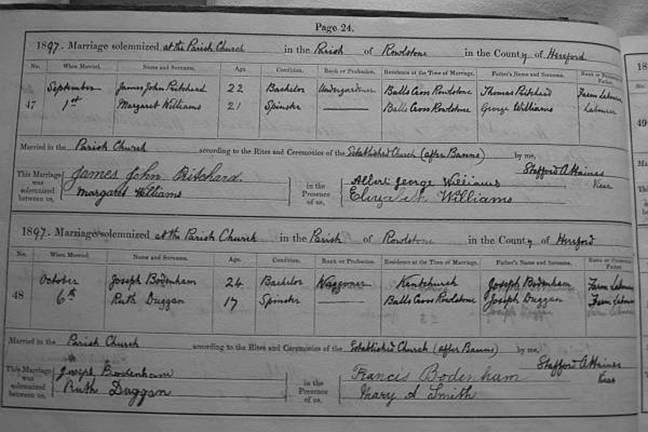 Page 24.
1897. Marriage solemnized at the Parish Church in the Parish of Rowlstone in the County of Hereford
No. When Married. Name and Surname. Age. Condition. Rank or Profession. Residence at the Time of Marriage. Father's Name and Surname. Rank or Profession of Father.
47 September 1st James John Pritchard 22 Bachelor Undergardener Balls Cross Rowlstone Thomas Pritchard Farm Labourer
Margaret Williams 21 Spinster Balls Cross Rowlstone George Williams Labourer
Married in the Parish Church according to the Rites and Ceremonies of the Established Church (after Banns) by me,
Stafford A Haines
Vicar
This Marriage was solemnized between us, James John Pritchard. Margaret Williams in the Presence of us, Albert George Williams Elizabeth Williams
1897. Marriage solemnized at the Parish Church in the Parish of Rowlstone in the County of Hereford
No. When Married. Name and Surname. Age. Condition. Rank or Profession. Residence at the Time of Marriage. Father's Name and Surname. Rank or Profession of Father.
48 October 6th Joseph Bodenham 24 Bachelor Waggoner Kentchurch Joseph Bodenham Farm Labourer
Ruth Duggan 17 Spinster Balls Cross Rowlstone Joseph Duggan Farm Labourer
Married in the Parish Church according to the Rites and Ceremonies of the Established Church (after Banns) by me,
Stafford A Haines
Vicar
This Marriage was solemnized between us, Joseph Bodenham Ruth Duggan in the Presence of us, Francis Bodenham Mary A Smith